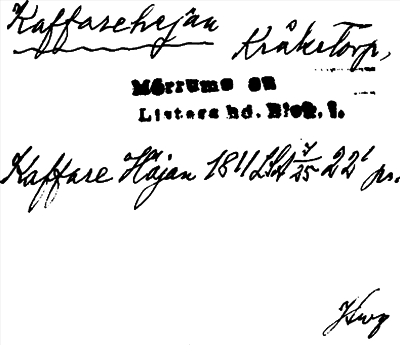 Kaffarehejan
Kråketorp,
Mörrums sn
Listers hd. Blek. l.
Kaffare Häjan 1811 LSA 7/25 22' ps.